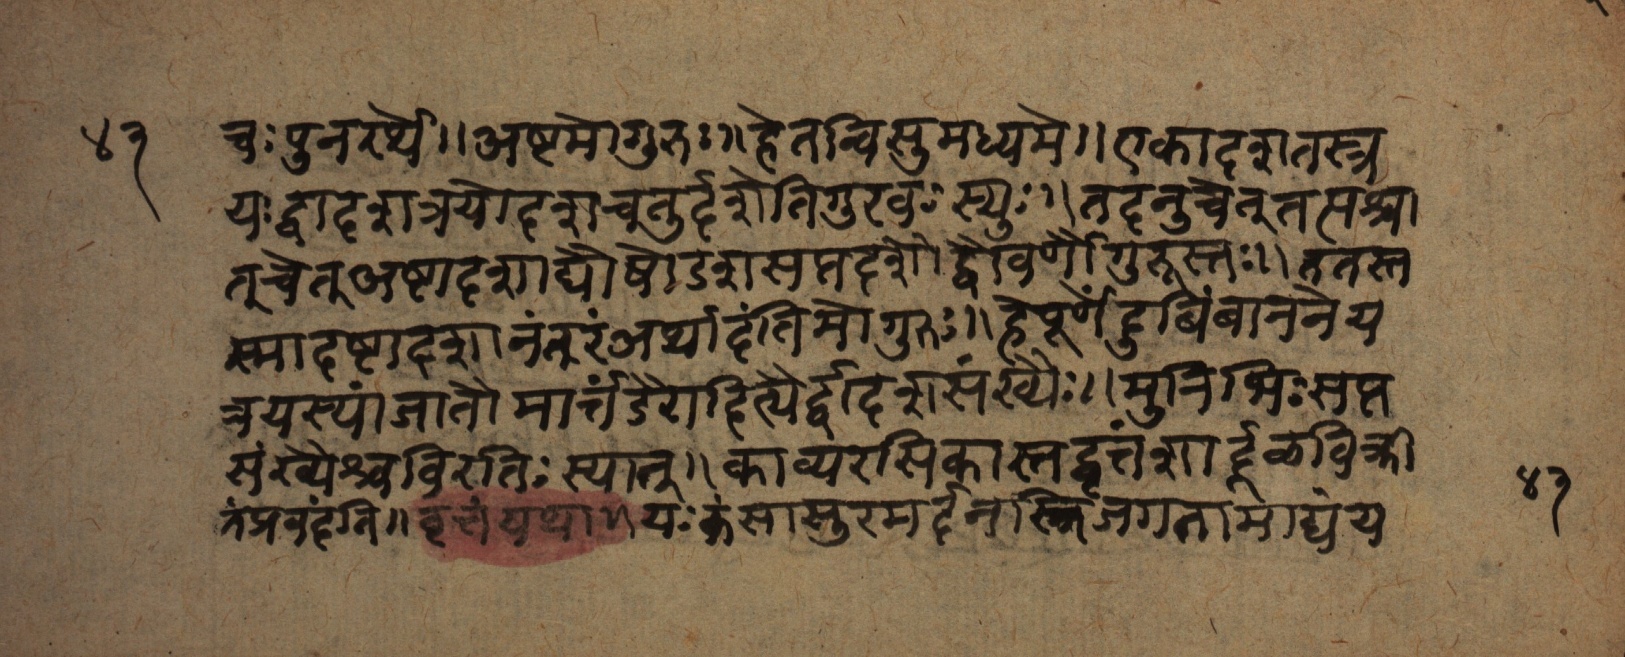 ४१
चः पुनरर्थे ॥ अष्टमो गुरुः ॥ हे तन्वि सुमध्यमे ॥ एकादशतस्त्र
यः द्वादशत्रयोदशचतुर्दशेति गुरवः स्युः ॥ तदनु चेत् तत्पश्चा
त् चेत् अष्टादशाद्यौ षोडशसप्तदशौ द्वौ वर्णौ गुरूस्तः ॥ ततस्त
स्मादष्टादशानंतरं अर्थादंतिमो गुरुः ॥ हे पूर्णेंदुबिंबानने य
त्र यस्यां जातौ मार्त्तंडैरादित्यैर्द्वादशसंख्यैः ॥ मुनिभिः सप्त
संख्यैश्च विरतिः स्यात् ॥ काव्यरसिकास्तद्वृत्तं शार्दूळविक्री
तं प्रवदंति ॥ वृत्तं यथा ॥ यः कंसासुरमर्दनस्त्रिजगतामाद्यं य
४१